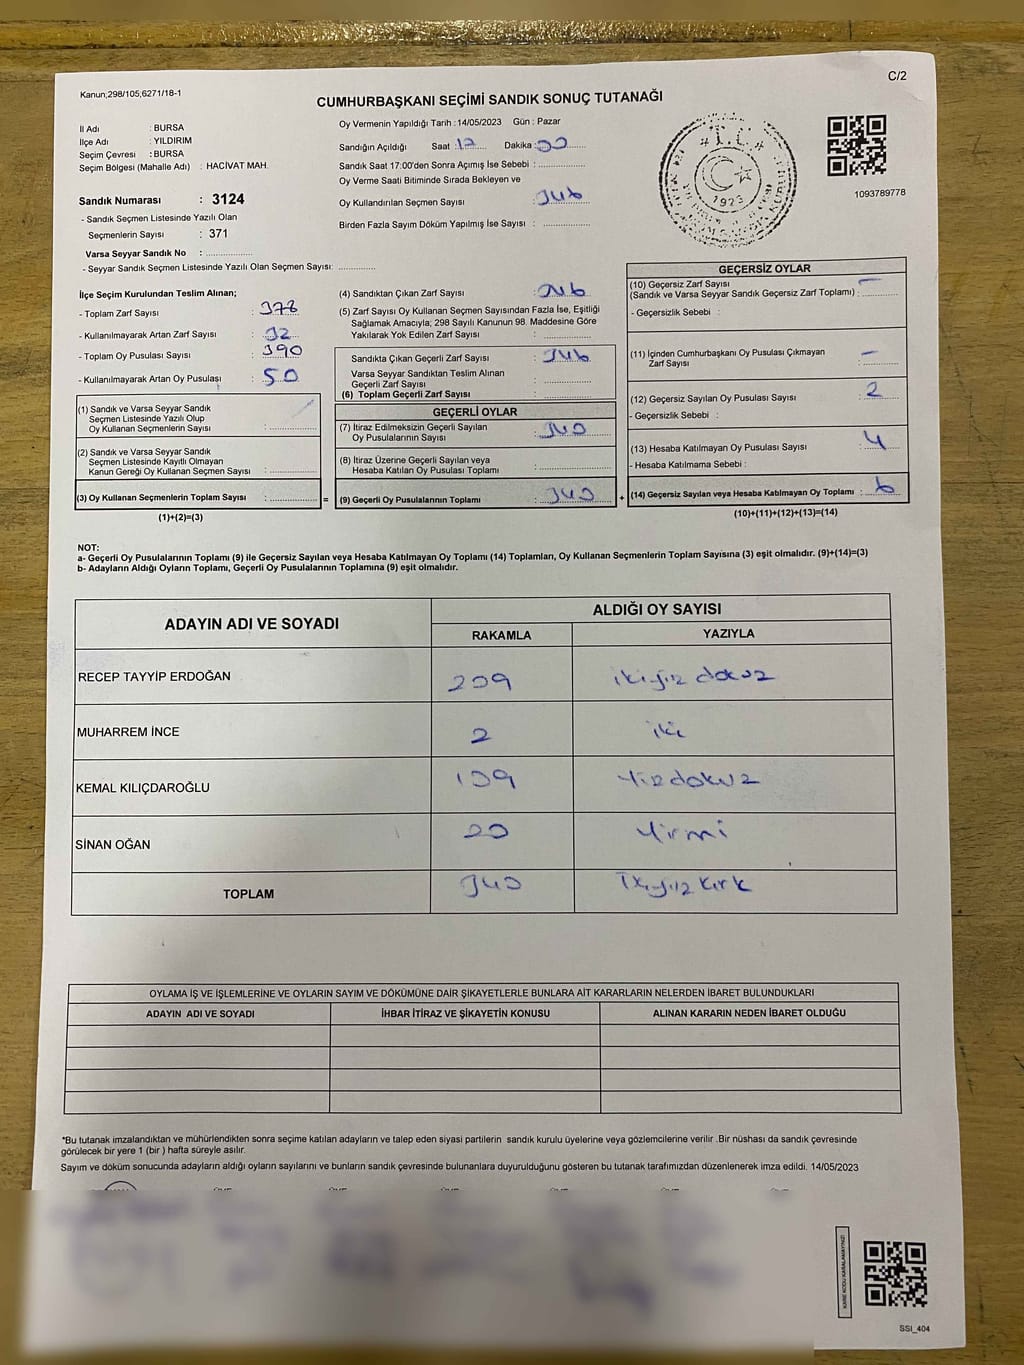 C/2
Kanun,298/105,6271/18-1
CUMHURBAŞKANI SEÇİMİ SANDIK SONUÇ TUTANAĞI
İl Adı : BURSA
İlçe Adı : YILDIRIM
Seçim Çevresi : BURSA
Seçim Bölgesi (Mahalle Adı) : HACİVAT MAH.
Sandık Numarası : 3124
- Sandık Seçmen Listesinde Yazılı Olan
Seçmenlerin Sayısı : 371
Varsa Seyyar Sandık No :
- Seyyar Sandık Seçmen Listesinde Yazılı Olan Seçmen Sayısı:
Oy Vermenin Yapıldığı Tarih :14/05/2023 Gün : Pazar
Sandığın Açıldığı Saat :17 Dakika :00
Sandık Saat 17:00'den Sonra Açımış İse Sebebi :
Oy Verme Saati Bitiminde Sırada Bekleyen ve
Oy Kullandırılan Seçmen Sayısı : 346
Birden Fazla Sayım Döküm Yapılmış İse Sayısı :
T.C.
1923
1093789778
İlçe Seçim Kurulundan Teslim Alınan;
- Toplam Zarf Sayısı : 378
- Kullanılmayarak Artan Zarf Sayısı : 32
- Toplam Oy Pusulası Sayısı : 390
- Kullanılmayarak Artan Oy Pusulası : 50
(1) Sandık ve Varsa Seyyar Sandık
Seçmen Listesinde Yazılı Olup
Oy Kullanan Seçmenlerin Sayısı :
(2) Sandık ve Varsa Seyyar Sandık
Seçmen Listesinde Kayıtlı Olmayan
Kanun Gereği Oy Kullanan Seçmen Sayısı :
(3) Oy Kullanan Seçmenlerin Toplam Sayısı : =
(1)+(2)=(3)
(4) Sandıktan Çıkan Zarf Sayısı : 346
(5) Zarf Sayısı Oy Kullanan Seçmen Sayısından Fazla İse, Eşitliği
Sağlamak Amacıyla; 298 Sayılı Kanunun 98. Maddesine Göre
Yakılarak Yok Edilen Zarf Sayısı :
Sandıkta Çıkan Geçerli Zarf Sayısı : 346
Varsa Seyyar Sandıktan Teslim Alınan
Geçerli Zarf Sayısı :
(6) Toplam Geçerli Zarf Sayısı :
GEÇERLİ OYLAR
(7) İtiraz Edilmeksizin Geçerli Sayılan
Oy Pusulalarının Sayısı : 340
(8) İtiraz Üzerine Geçerli Sayılan veya
Hesaba Katılan Oy Pusulası Toplamı :
(9) Geçerli Oy Pusulalarının Toplamı : 340 +
GEÇERSİZ OYLAR
(10) Geçersiz Zarf Sayısı
(Sandık ve Varsa Seyyar Sandık Geçersiz Zarf Toplamı) : -
- Geçersizlik Sebebi :
(11) İçinden Cumhurbaşkanı Oy Pusulası Çıkmayan
Zarf Sayısı : -
(12) Geçersiz Sayılan Oy Pusulası Sayısı : 2
- Geçersizlik Sebebi :
(13) Hesaba Katılmayan Oy Pusulası Sayısı : 4
- Hesaba Katılmama Sebebi :
(14) Geçersiz Sayılan veya Hesaba Katılmayan Oy Toplamı : 6
(10)+(11)+(12)+(13)=(14)
NOT:
a- Geçerli Oy Pusulalarının Toplamı (9) ile Geçersiz Sayılan veya Hesaba Katılmayan Oy Toplamı (14) Toplamları, Oy Kullanan Seçmenlerin Toplam Sayısına (3) eşit olmalıdır. (9)+(14)=(3)
b- Adayların Aldığı Oyların Toplamı, Geçerli Oy Pusulalarının Toplamına (9) eşit olmalıdır.
ADAYIN ADI VE SOYADI ALDIĞI OY SAYISI
RAKAMLA YAZIYLA
RECEP TAYYİP ERDOĞAN 209 ikiyüz dokuz
MUHARREM İNCE 2 iki
KEMAL KILIÇDAROĞLU 109 Yüzdokuz
SİNAN OĞAN 20 Yirmi
TOPLAM 340 İkiyüz kırk
OYLAMA İŞ VE İŞLEMLERİNE VE OYLARIN SAYIM VE DÖKÜMÜNE DAİR ŞİKAYETLERLE BUNLARA AİT KARARLARIN NELERDEN İBARET BULUNDUKLARI
ADAYIN ADI VE SOYADI İHBAR İTİRAZ VE ŞİKAYETİN KONUSU ALINAN KARARIN NEDEN İBARET OLDUĞU
*Bu tutanak imzalandıktan ve mühürlendikten sonra seçime katılan adayların ve talep eden siyasi partilerin sandık kurulu üyelerine veya gözlemcilerine verilir .Bir nüshası da sandık çevresinde
görülecek bir yere 1 (bir ) hafta süreyle asılır.
Sayım ve döküm sonucunda adayların aldığı oyların sayılarını ve bunların sandık çevresinde bulunanlara duyurulduğunu gösteren bu tutanak tarafımızdan düzenlenerek imza edildi. 14/05/2023
KARE KODU KARALAMAYINIZ!
SSI_404